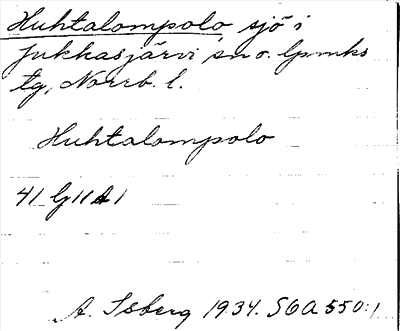 Huhtalompolo, sjö i
Jukkasjärvi sn o. lpmks
tg, Norrb. l.
Huhtalompolo
41 G11 A 1
A. Isberg 1934. SOA 550:1